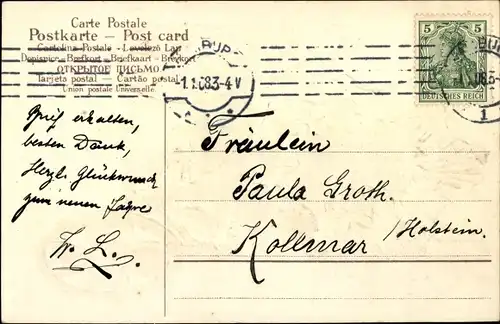 Carte Postale
Postkarte — Post card
Cartolina Postale - Levelező Lap
Dopisnice - Brefkort - Briefkaart - Brevkort
ОТКРЫТОЕ ПИСЬМО
Tarjeta postal — Cartão postal
Union postale Universelle.
1.1.08.3-4V
5 5
DEUTSCHES REICH
1
Gruß erhalten,
besten Dank,
Herzl. Glückwunsch
zum neuen Jahre
W. L.
Fräulein
Paula Groth.
Kollmar /Holstein.